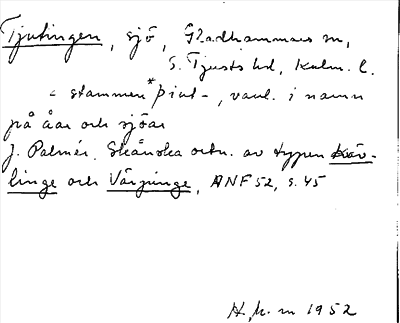 Tjutingen, sjö, Gladhammars sn,
S. Tjusts hd, Kalm. l.
< stammen *þiut-, vanl. i namn
på åar och sjöar
J. Palmér. Skånska ortn. av typen Käv-
linge och Värpinge, ANF 52, s. 45
1952